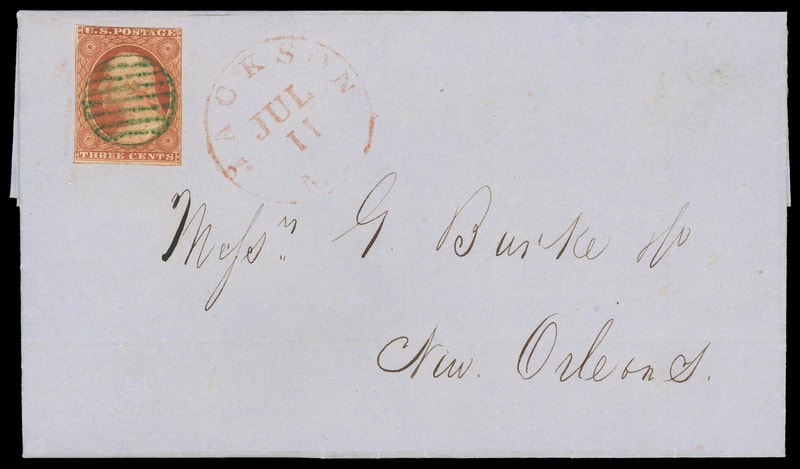 U.S. POSTAGE
THREE CENTS
JACKSON
JUL
11
Messrs. G. Burke &Co
New. Orleans.